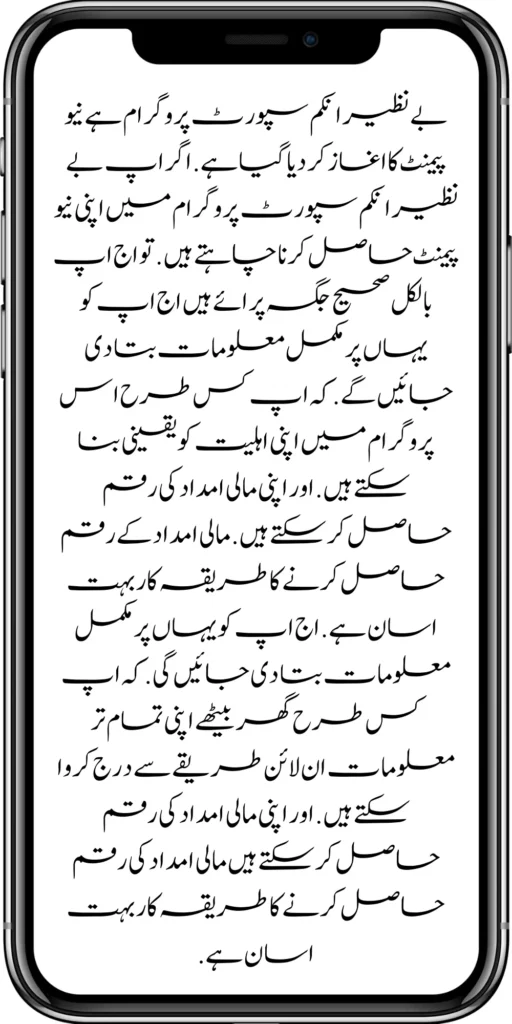 بے نظیر انکم سپورٹ پروگرام ہے نیو
پیمنٹ کا اغاز کر دیا گیا ہے. اگر اپ بے
نظیر انکم سپورٹ پروگرام میں اپنی نیو
پیمنٹ حاصل کرنا چاہتے ہیں. تو اج اپ
بالکل صحیح جگہ پر ائے ہیں اج اپ کو
یہاں پر مکمل معلومات بتا دی
جائیں گے. کہ اپ کس طرح اس
پروگرام میں اپنی اہلیت کو یقینی بنا
سکتے ہیں. اور اپنی مالی امداد کی رقم
حاصل کر سکتے ہیں. مالی امداد کے رقم
حاصل کرنے کا طریقہ کار بہت
اسان ہے. اج اپ کو یہاں پر مکمل
معلومات بتا دی جائیں گی. کہ اپ
کس طرح گھر بیٹھے اپنی تمام تر
معلومات ان لائن طریقے سے درج کروا
سکتے ہیں. اور اپنی مالی امداد کی رقم
حاصل کر سکتے ہیں مالی امداد کی رقم
حاصل کرنے کا طریقہ کار بہت
اسان ہے.